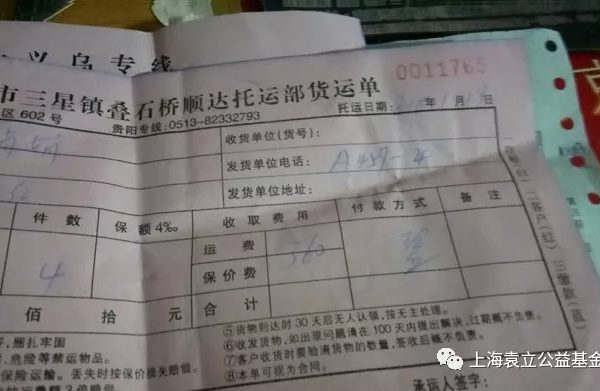 义乌专线
市三星镇叠石桥顺达托运部货运单
0011765
区602号
贵阳专线:0513-82332793
托运日期: 年 月
收货单位(货号):
发货单位电话: A459-4
发货单位地址:
件数 保额4‰ 收取费用 付款方式 备注
4 运费 360
保价费
合计
佰 拾 元
⑤货物到达时30天后无人认领,按无主处理。
⑥收发货物,如出现问题请在100天内提出解决,过期概不负责。
⑦客户收货时要验清货物的数量,签收后概不负责。
⑧本单可视为合同。
,捆扎牢固
、危险等禁运物品。
保险运输。丢失时按保价损失赔偿。
承运人签字
二客户(红)
三缴款(蓝)
上海袁立公益基金